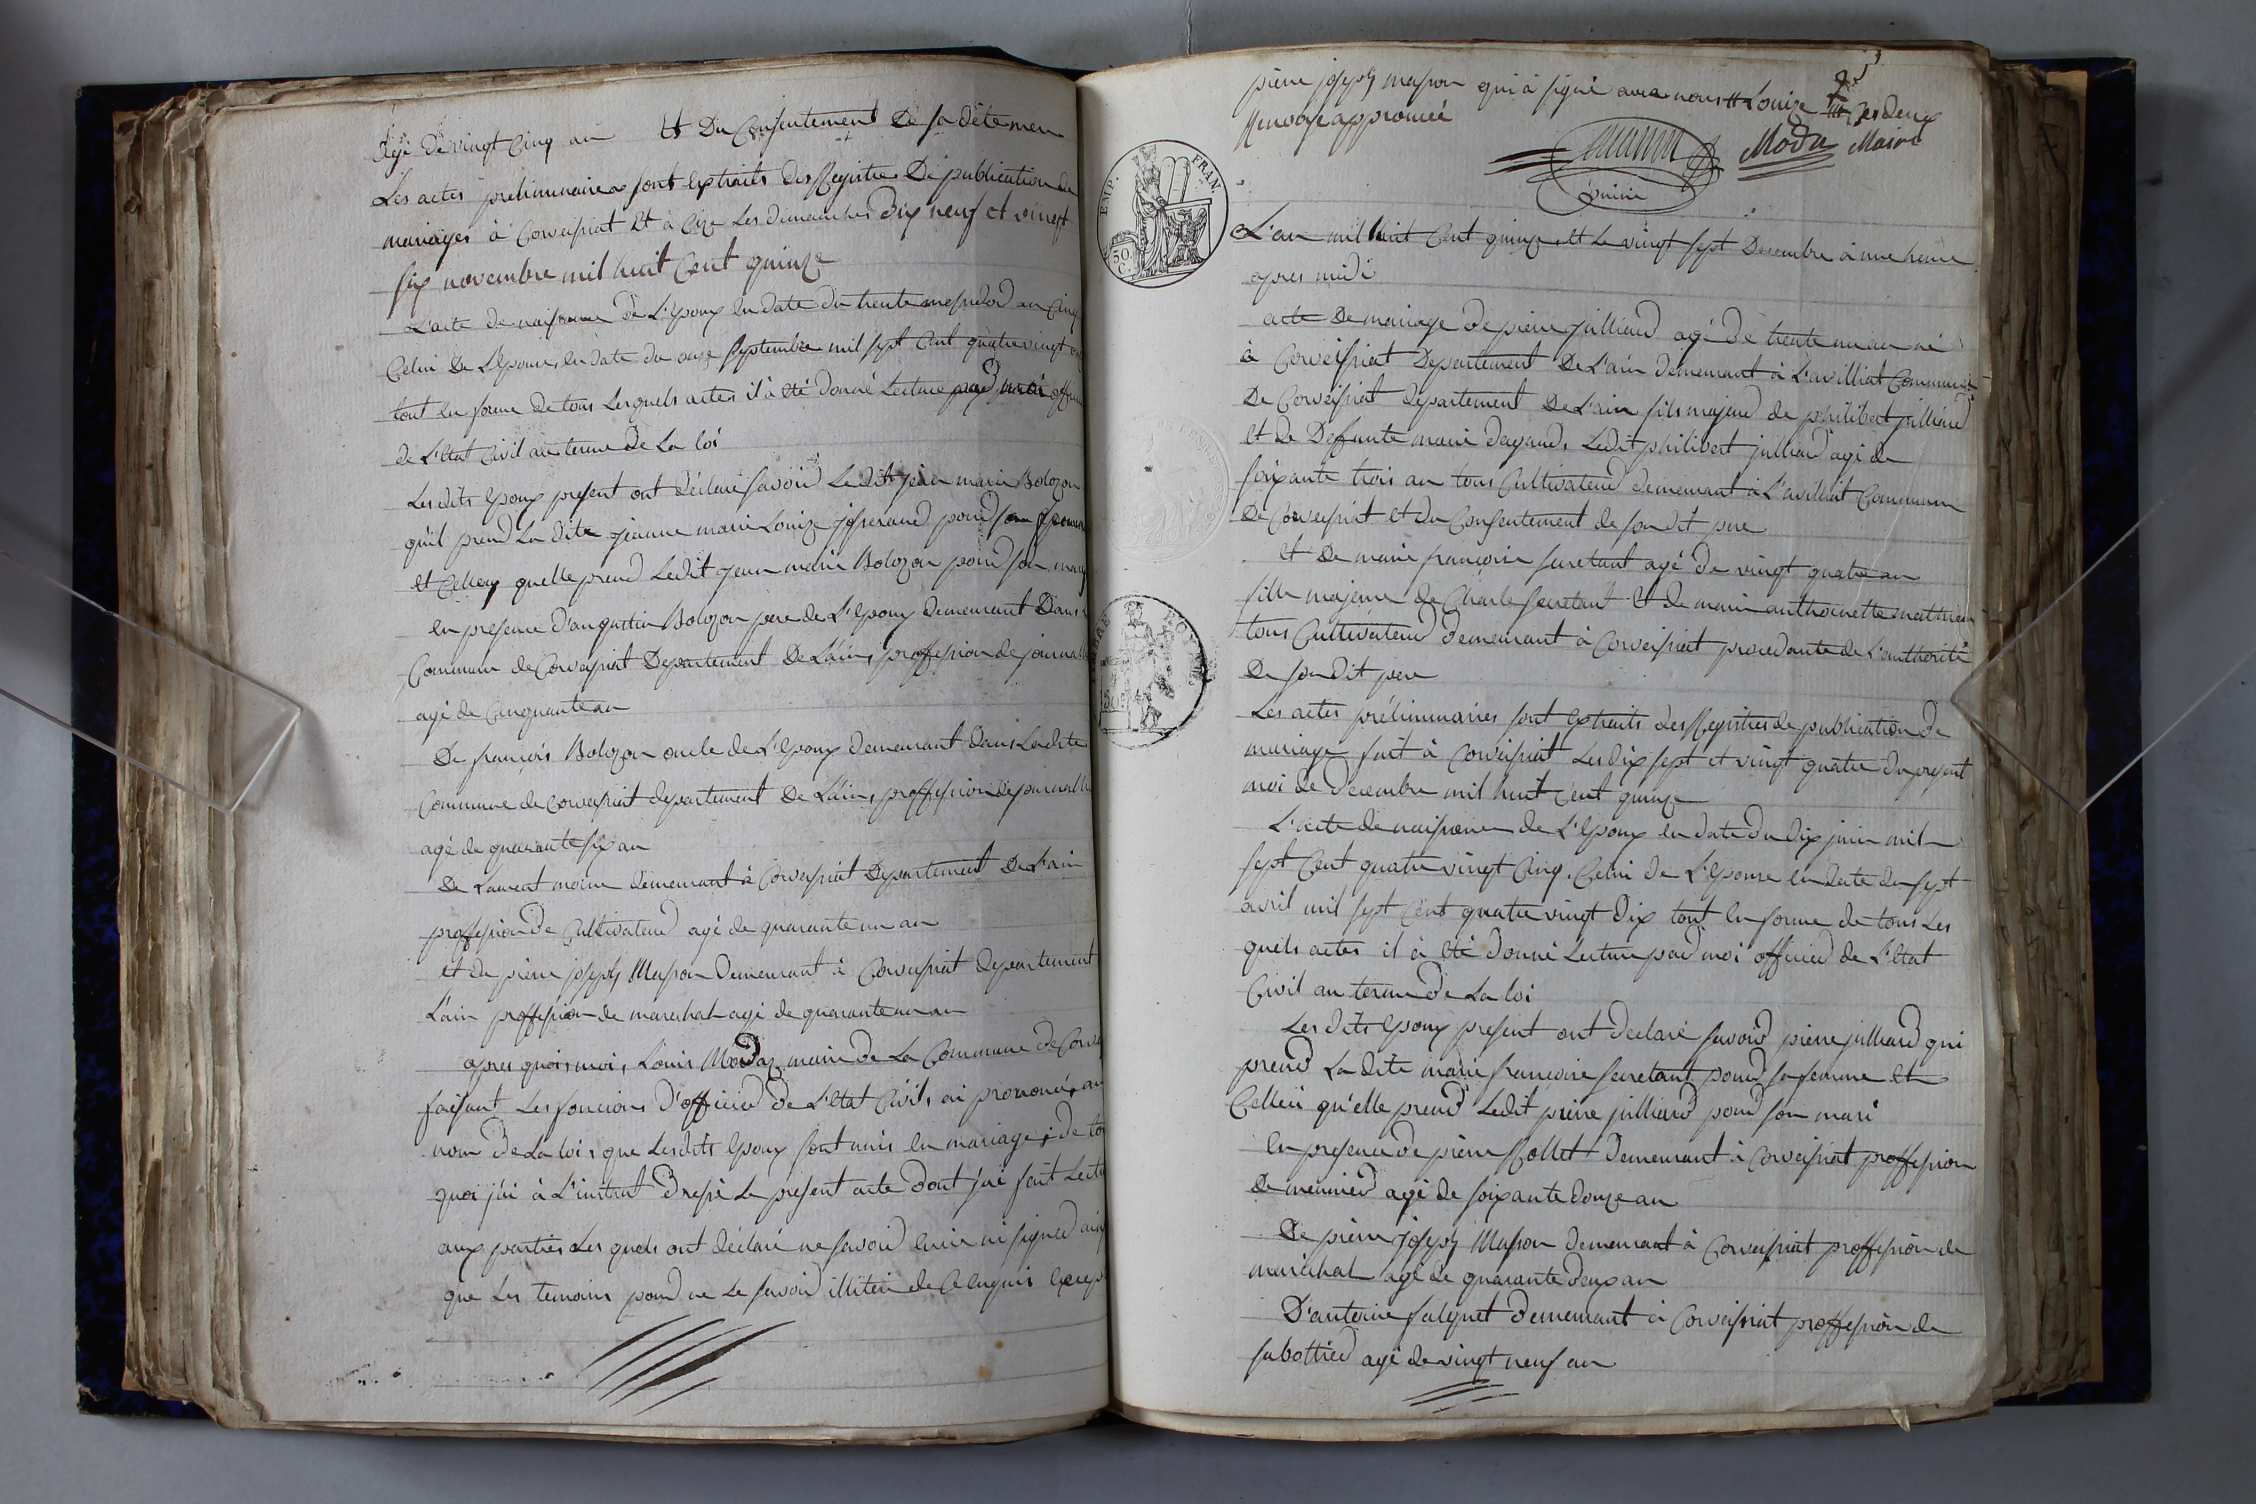 agé de vingt cinq an et Du Consentement De sa dite mere
Les actes preliminaires sont Extraits des Registres De publication de
mariages à Corveissiat et à Cize Les dimanches Dix neuf et vingt
six novembre mil huit Cent quinze
L'acte de naissance de L'Epoux En date du trente messidor an Cinq
Celui De L'Epouse, En date du onze septembre mil sept Cent quatre vingt
tout En forme de tous Lesquels actes il à été donné Lecture par moi
de L'Etat Civil au terme de La loi
Lesdits Epoux present ont déclaré savoir Le dit jean marie Bolozon
qu'il prend La dite jeanne marie Louize josserand pour son Epouse
et Celleci quelle prend Ledit jean marie Bolozon pour son mary
En presence d'augustin Bolozon pere de L'Epoux demeurant Dans
Commune de Corveissiat Departement De L'ain, proffession de journallier
agé de Cinquante an
De françois Bolozon oncle de L'Epoux demeurant dans Ladite
Commune de Corveissiat departement De L'ain, proffession de journallier
agé de quarante six an
De Laurent demeurant à Corveissiat Departement De L'ain
proffession De Cultivateur agé de quarante un an
et de pierre joseph Masson demeurant à Corveissiat departement
L'ain proffession de marechal agé de quarante un an
apres quoi, moi, Louis Modaz maire de La Commune de
faisant Les foncions D'officier de L'Etat Civil, ai prononcé, au
nom De La loi, que Lesdits Epoux sont unis En mariage; de
quoi j'ai à L'instant dressé Le present acte dont j'ai fait Lecture
aux parties Les quels ont déclaré ne savoir Ecrire ni signer
que Les temoins pour ne Le savoir illitéré de Ce Enquis Excepté
pierre joseph masson qui à signé avec nous # Louize
Renvoi approuvé
masson Moda Maire
EMP. FRAN.
50 C.
L'an mil huit Cent quinze, et Le vingt sept Decembre à une heure
apres midi
acte De mariage de pierre jullierd agé de trente un an né
à Corveissiat Departement De L'ain demeurant à L'avilliat Commune
De Corveissiat departement De L'ain fils majeur de philibert jullierd
et de Deffunte marie dagaud, Ledit philibert julliard agé de
soixante trois an tous Cultivateur demeurant à L'avilliat Commune
De Corveissiat et du Consentement de son dit pere
et De marie françoise secretant agé De vingt quatre an
fille majeure de Charle secretant & de marie anthoinette mathieu
tous Cultivateur demeurant à Corveissiat procedante de L'authorité
De son Dit pere
Les actes préliminaires sont Extraits des Registres de publication de
mariage fait à Corveissiat Les dix sept et vingt quatre du present
moi de Decembre mil huit Cent quinze
L'acte de naissance de L'Epoux En date du dix juin mil
sept Cent quatre vingt Cinq. Celui de L'Epouse En date du sept
avril mil sept Cent quatre vingt dix tout En forme de tous Les
quels actes il à Eté donné Lecture par moi officier de L'Etat
Civil au terme de La loi
Les dits Epoux present ont declaré savoir pierre julliard qui
prend La dite marie françoise secretant pour sa femme et
Celleci qu'elle prend Ledit pierre julliard pour son mari
En presence de pierre Collet demeurant à Corveissiat proffession
De meunier agé de soixante douze an
De pierre joseph Masson demeurant à Corveissiat proffession de
maréchal agé de quarante deux an
D'antoine demeurant à Corveissiat proffession de
sabottier agé de vingt neuf an